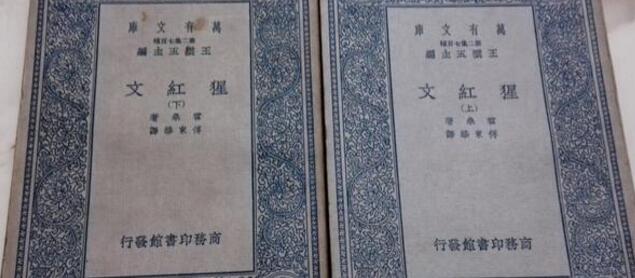 萬有文庫
第二集七百種
王雲五主編
猩紅文
(上)
霍桑著
傅東華譯
商務印書館發行
萬有文庫
第二集七百種
王雲五主編
猩紅文
(下)
霍桑著
傅東華譯
商務印書館發行